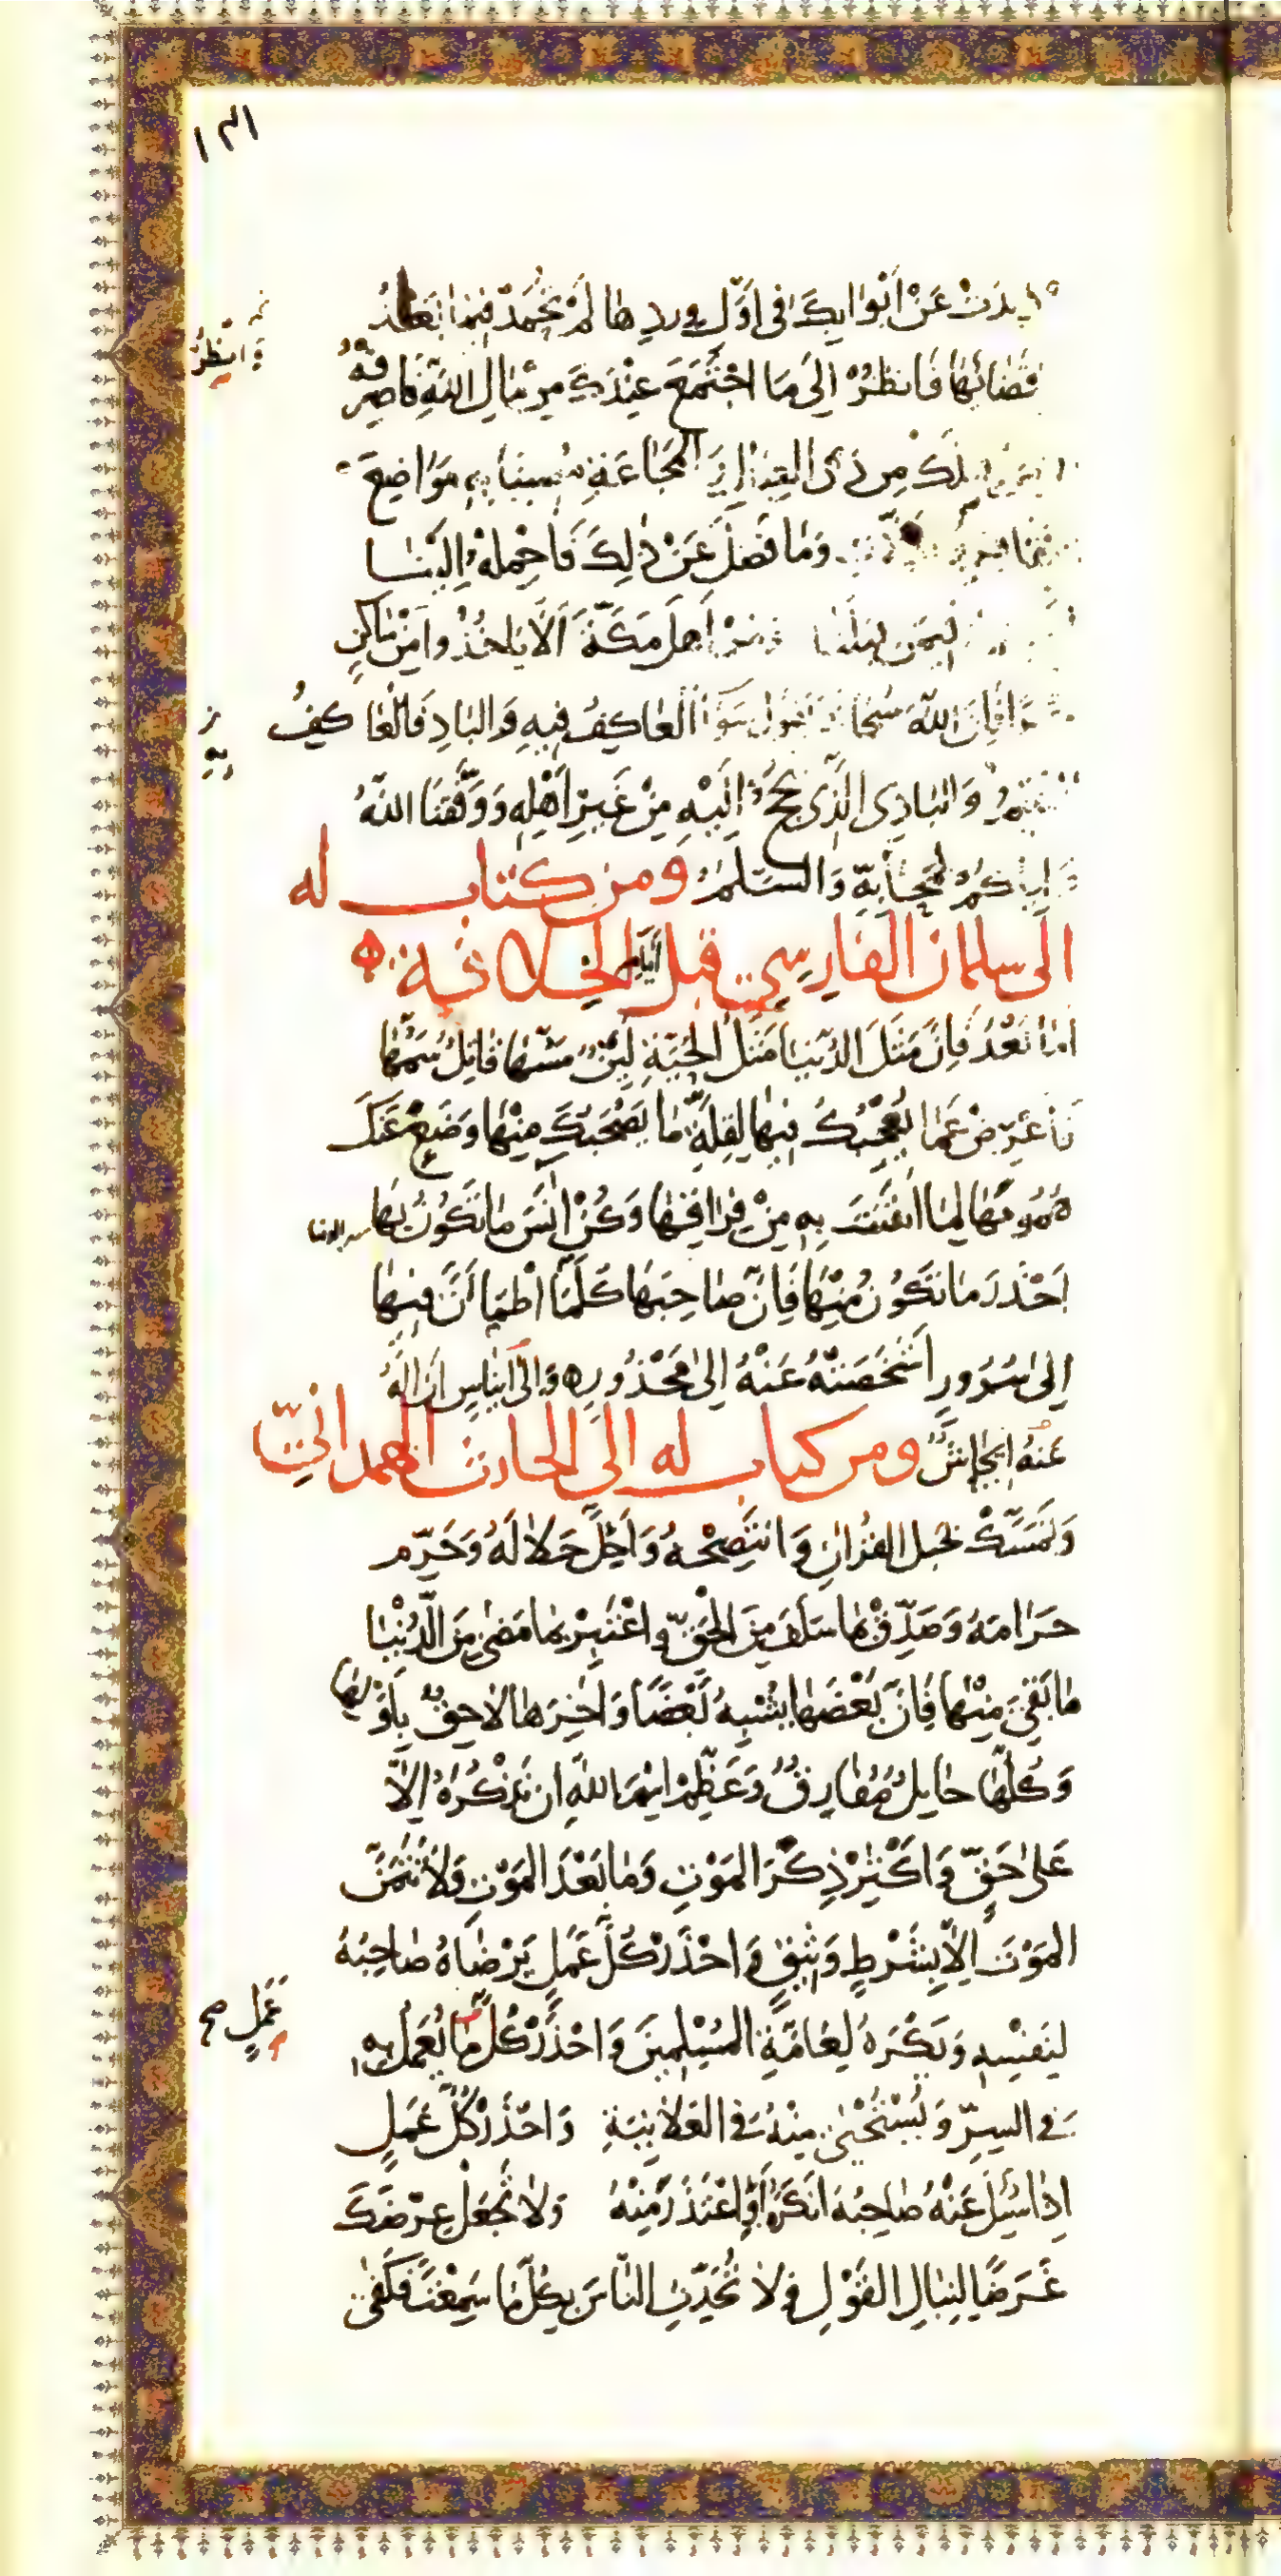 ذيدَتْ عَنْ اَبْوَابِكَ فى اَوَّلِ وِردِهَا لَمْ تُحْمَدْ فِيمَا بَعْدُ
قَضَائِهَا فَانظُرْ اِلىَ مَا اجْتَمَعَ عِنْدَكَ مِنْ مَالِ اللّهِ فَاصْرِفْهُ
وَانظُرْ
قِبَلَكَ مِن ذَوِى العِيَالِ وَ المَجَاعَةِ مُصِيبًا بِهِ مَوَاضِعَ
وَمَا فَضَلَ عَنْ ذٰلِكَ فَاحْمِلْهُ اِلَيْنَا
لِيَمَن قِبَلَنَا اَهلَ مَكَّةَ اَلَّا يَاخُذُوا مِنْ سَاكِنٍ
فَاِنَّ اللّهَ سُبْحَانَهُ يَقُولُ سَوَآءً العَاكِفُ فِيهِ وَالبَادِ فَالْعَاكِفُ
بِهِ
وَالبَادِى الَّذِى يَحُجُّ اِلَيْهِ مِنْ غَيرِ اَهْلِهِ وَوَفَّقَنَا اللّهُ
وَاِيَّاكُمْ لِمَحَابِّهِ وَالسَّلمُ ومن كتاب له
الى سلمان الفارسي قبل اَيّام الخلافة
اَمَّا بَعْدُ فَاِنَّ مَثَلَ الدُّنيَا مَثَلُ الْحَيَّةِ لَيِّنٌ مَسُّهَا قَاتِلٌ سَمُّهَا
فَاَعْرِضْ عَمَّا يُعْجِبُكَ فِيهَا لِقِلَّةِ مَا يَصْحَبُكَ مِنْهَا وَضَعْ عَنكَ
هُمُومَهَا لِمَا اَيْقَنْتَ بِهِ مِنْ فِرَاقِهَا وَكُنْ اٰنَسَ مَا تَكُونُ بِهَا
اَحْذَرَ مَا تَكُونُ مِنْهَا فَاِنَّ صَاحِبَهَا كُلَّمَا اطْمَاَنَّ فِيهَا
اِلىٰ سُرُورٍ اَشْخَصَتْهُ عَنْهُ اِلىٰ مَحْذُورٍ وَالىٰ اينَاسٍ اَزَالَتْهُ
عَنهُ ايحَاشٍ ومن كتاب له الى الحارث الهمدانيّ
وَتَمَسَّكْ بِحَبلِ القُرْاٰنِ وَانتَصِحْهُ وَاَحِلَّ حَلَالَهُ وَحَرِّم
حَرَامَهُ وَصَدِّقْ بمَا سَلَفَ مِنَ الْحَقِّ واعْتَبِرْ بِمَا مَضىٰ مِنَ الدُّنْيَا
مَا بَقِيَ مِنْهَا فَاِنَّ بَعْضَهَا يُشْبِهُ بَعْضًا وَاٰخِرَهَا لَاحِقٌ بِاَوَّلِهَا
وَكُلُّهَا حَايِلٌ مُفَارِقٌ وَعَظِّمْ اسْمَ اللّهِ ان تَذكُرَهُ اِلَّا
عَلىٰ حَقٍّ وَاَكْثِرْ ذِكْرَ المَوْتِ وَمَا بَعْدَ المَوْتِ وَلَا تَتَمَنَّ
المَوْتَ اِلَّا بِشَرْطٍ وَثِيقٍ وَاحْذَرْ كُلَّ عَمَلٍ يَرْضَاهُ صَاحِبُهُ
لِنَفْسِهِ وَيَكْرَهُ لِعَامَّةِ المُسْلِمِينَ وَاحْذَرْ كُلَّ مَا يُعْمَلُ بِهِ
عَمَلٍ صح
فى السِّرِّ وَيُسْتَحْيىٰ مِنْهُ فى العَلَانِيَةِ وَاحْذَرْ كُلَّ عَمَلٍ
اِذَا سُئِلَ عَنْهُ صَاحِبُهُ اَنكَرَهُ اَوِ اعْتَذَرَ مِنْهُ وَلَا تَجْعَلْ عِرْضَكَ
غَرَضًا لِنِبَالِ القَوْلِ وَلَا تُحَدِّثِ النَّاسَ بِكُلِّ مَا سَمِعْتَ فَكَفىٰ